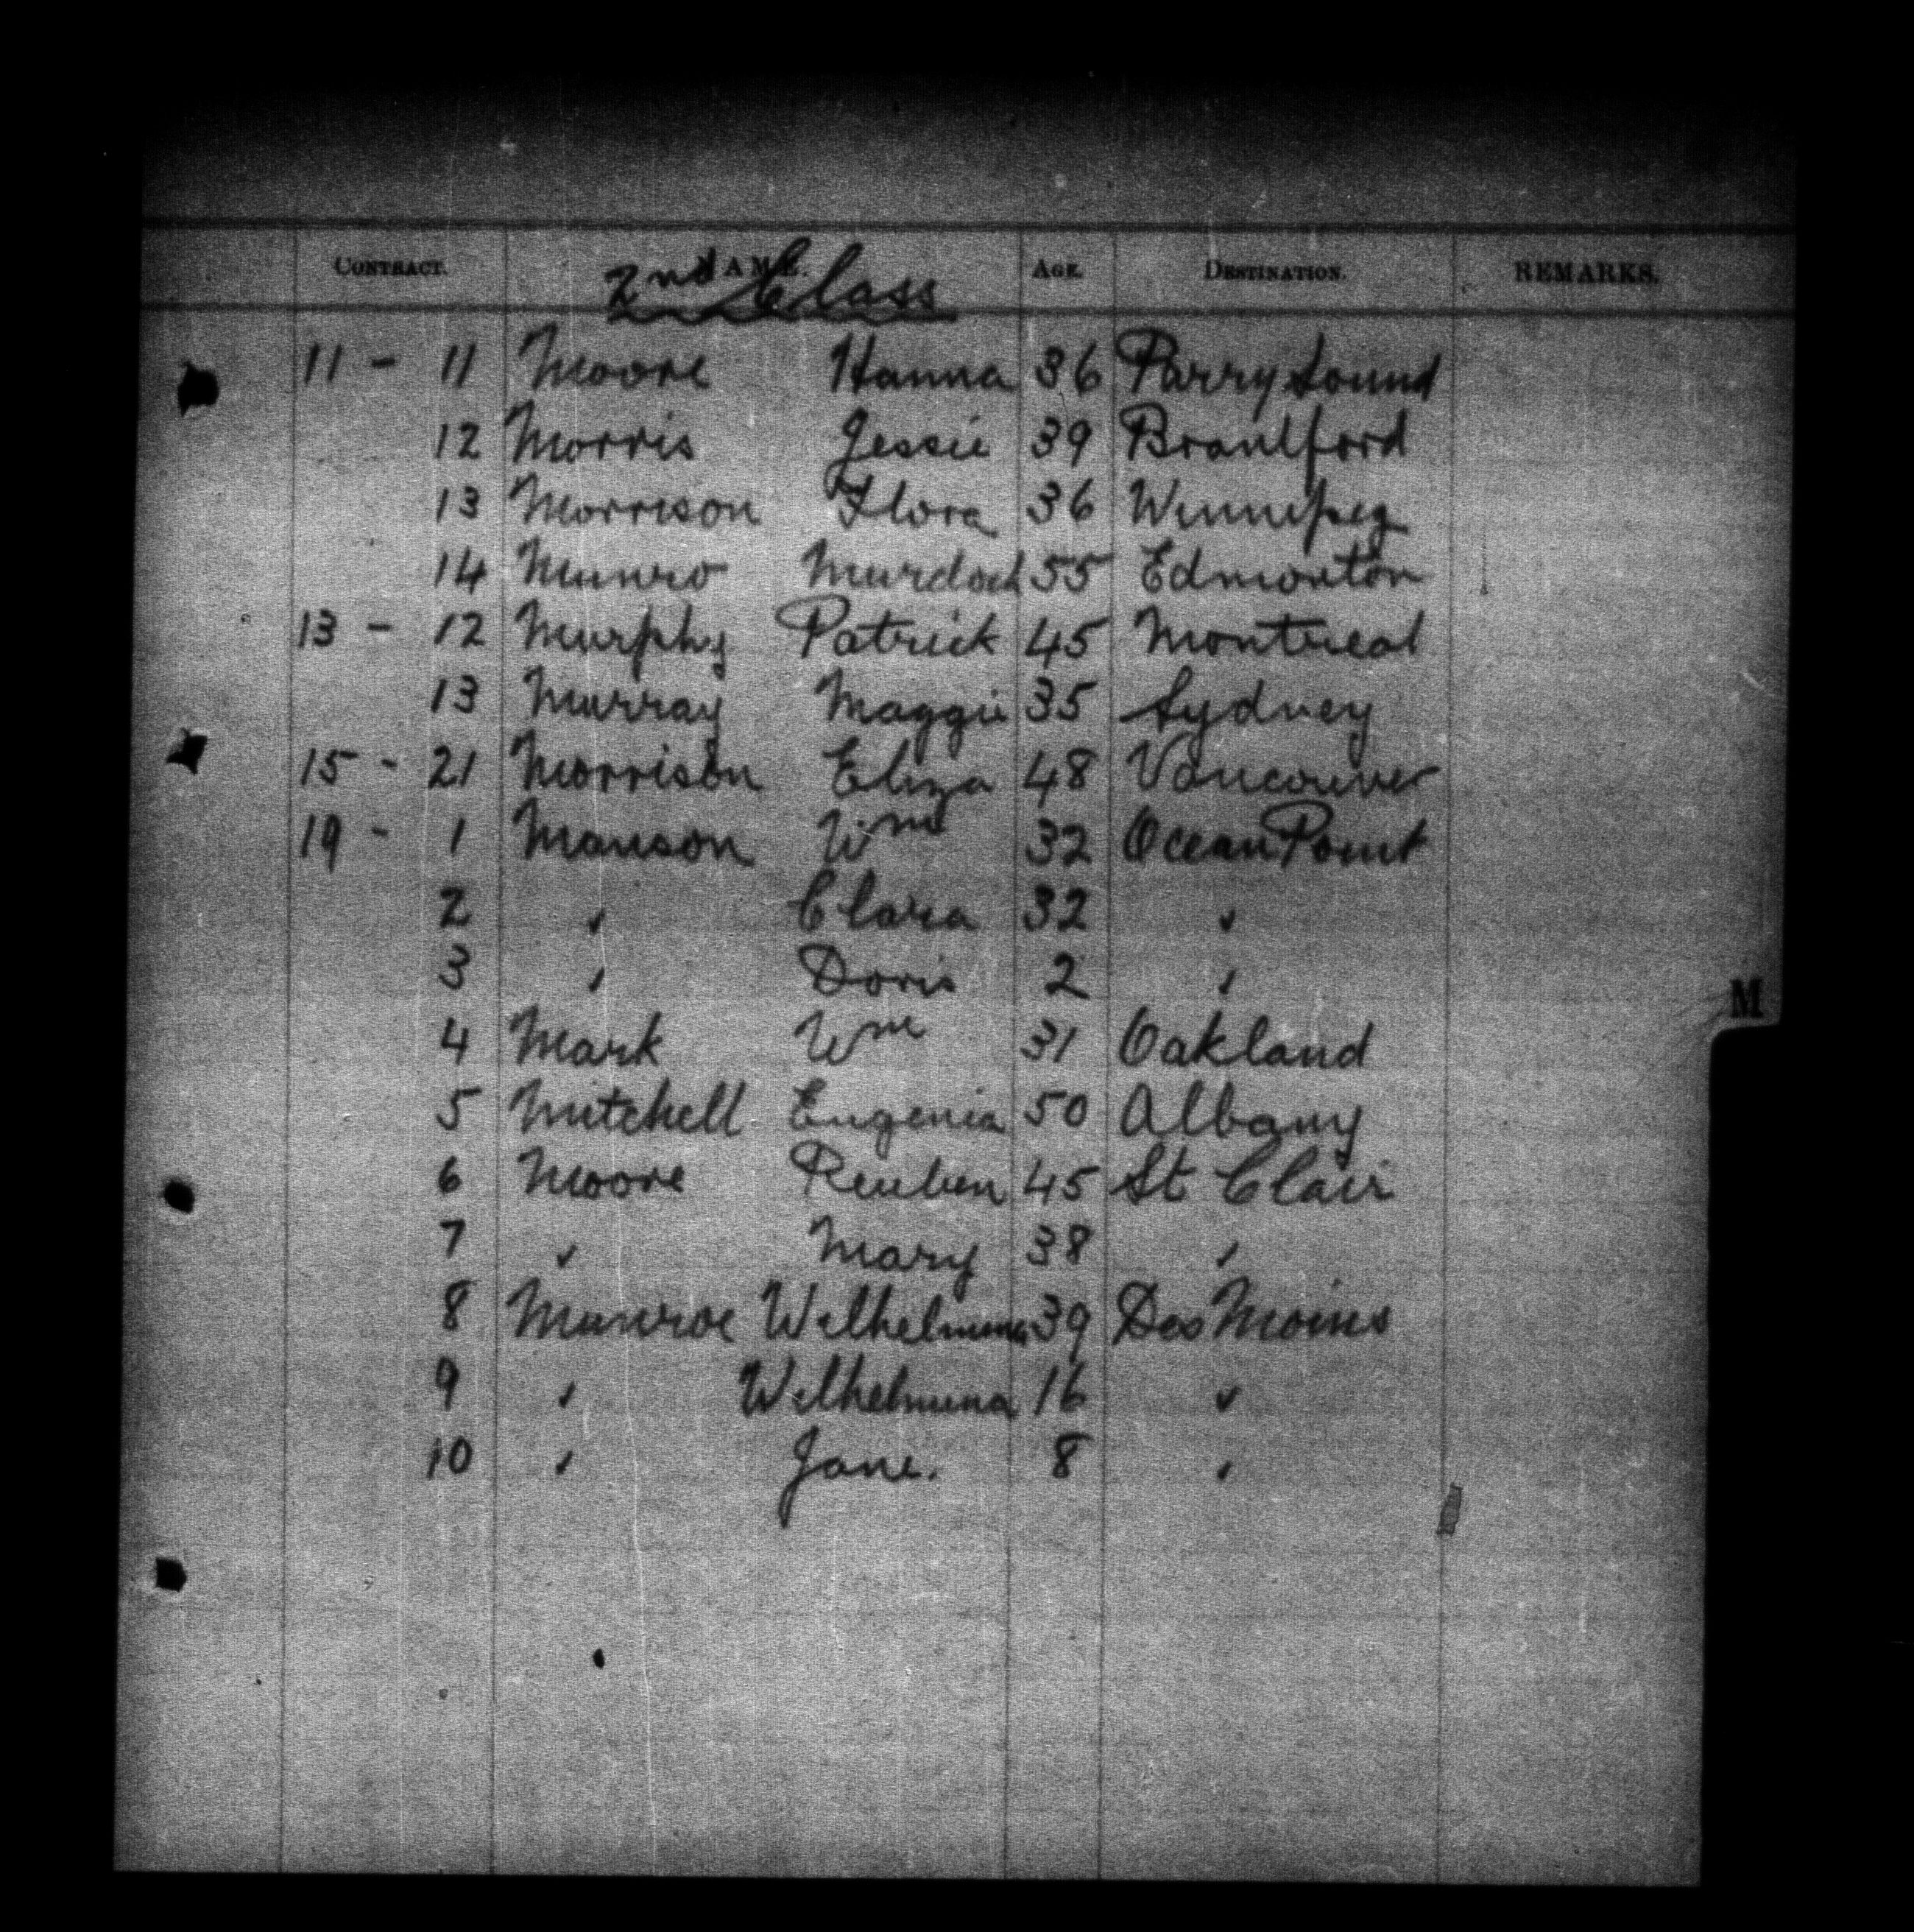 CONTRACT. NAME. AGE. DESTINATION. REMARKS.
2nd Class
11 - 11 Moore Hanna 36 Parry Sound
12 Morris Jessie 39 Brantford
13 Morrison Flora 36 Winnipeg
14 Munro Murdoch 55 Edmonton
13 - 12 Murphy Patrick 45 Montreal
13 Murray Maggie 35 Sydney
15 - 21 Morrison Eliza 48 Vancouver
19 - 1 Manson Wm 32 Ocean Point
2 " Clara 32 "
3 " Doris 2 "
M
4 Mark Wm 31 Oakland
5 Mitchell Eugenia 50 Albany
6 Moore Reuben 45 St Clair
7 " Mary 38 "
8 Munroe Wilhelmina 39 Des Moins
9 " Wilhelmina 16 "
10 " Jane. 8 "